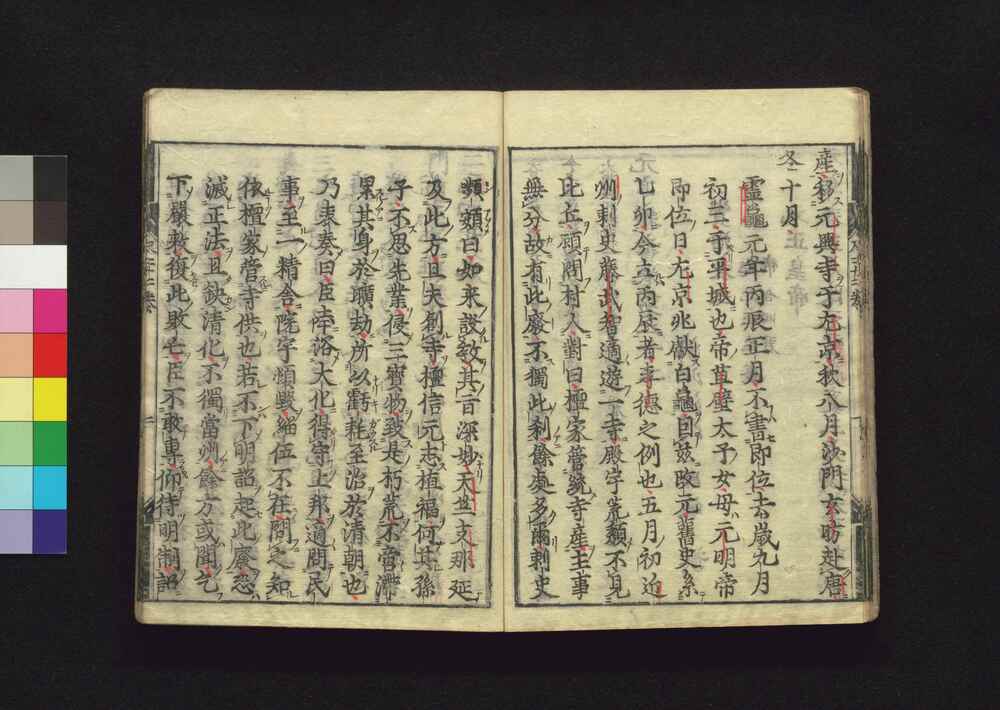 産移元興寺于左京秋八月沙門玄昉赴唐
冬十月
靈龜元年丙辰正月不書即位去歲九月
初三于平城也帝草壁太子女母元明帝
即位日左京兆獻白龜因茲改元舊史系
乙卯今立丙辰者孝德之例也五月初近
州刺史藤武智適遊一寺殿宇荒頽不見
比丘顧問村人對曰檀家管統寺產主事
無分故有此廢不獨此刹餘處多爾刺史
頻顣曰如來設教其旨深妙天竺支那延
及此方且夫創寺檀信元志植福何其孫
子不思先業侵三寶物致是朽荒不啻滯
果其身於壙劫所以虧耗至治於清朝也
乃表奏曰臣幸浴大化得守上邦適問民
事至一精舍院宇頽毀緇伍不在問之知
依檀家管寺供也若不下明詔起此廢恐
滅正法且缺清化不獨當州餘方或聞乞
下嚴敕復此敗亡臣不敢專仰待明制詔